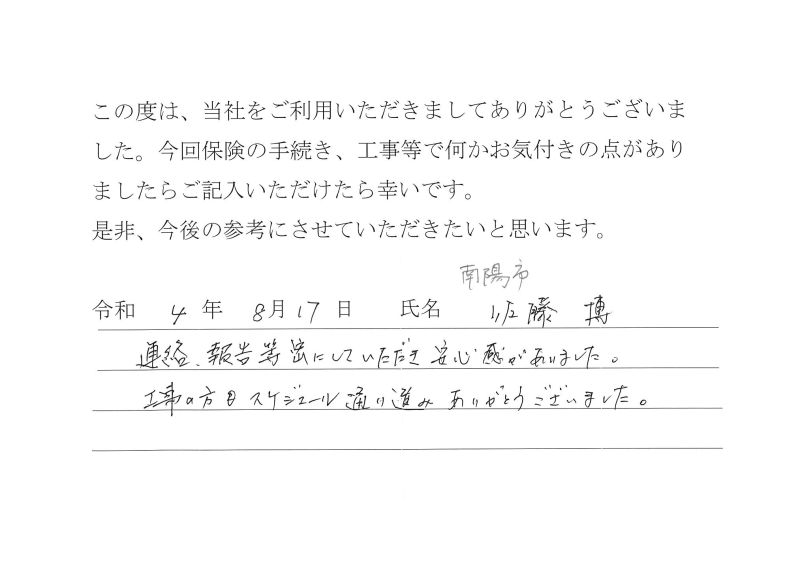 この度は、当社をご利用いただきましてありがとうございま
した。今回保険の手続き、工事等で何かお気付きの点があり
ましたらご記入いただけたら幸いです。
是非、今後の参考にさせていただきたいと思います。
南陽市
令和 4 年 8月17日 氏名 佐藤 博
連絡、報告等密にしていただき安心感がありました。
工事の方日スケジュール通り進みありがとうございました。